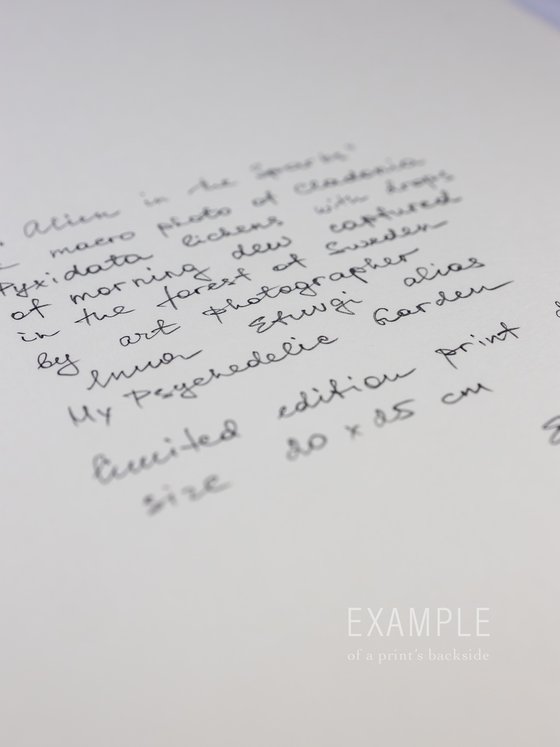 "Alien in the Sparks"
macro photo of cladonia
Pyxidata lichens with drops
of morning dew captured
in the forest of Sweden
by art photographer
Inna Etuvgi alias
My Psychedelic Garden
limited edition print
size 20 x 25 cm
EXAMPLE
of a print's backside